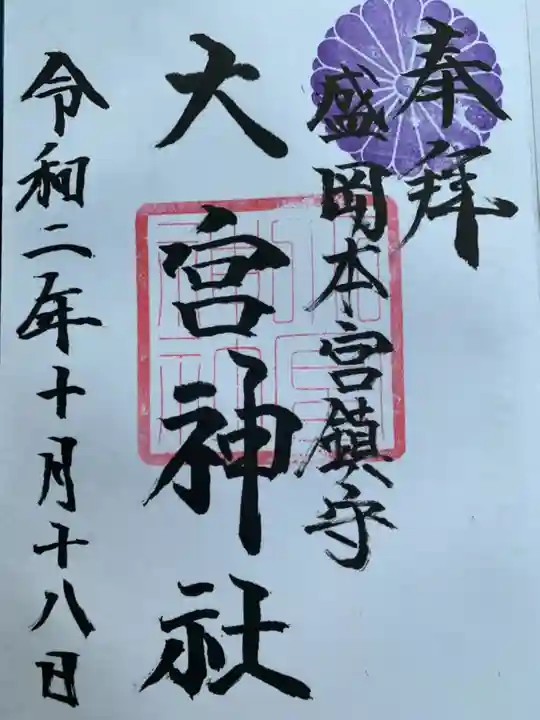 奉拜
盛岡本宮鎮守
大宮神社
令和二年十月十八日